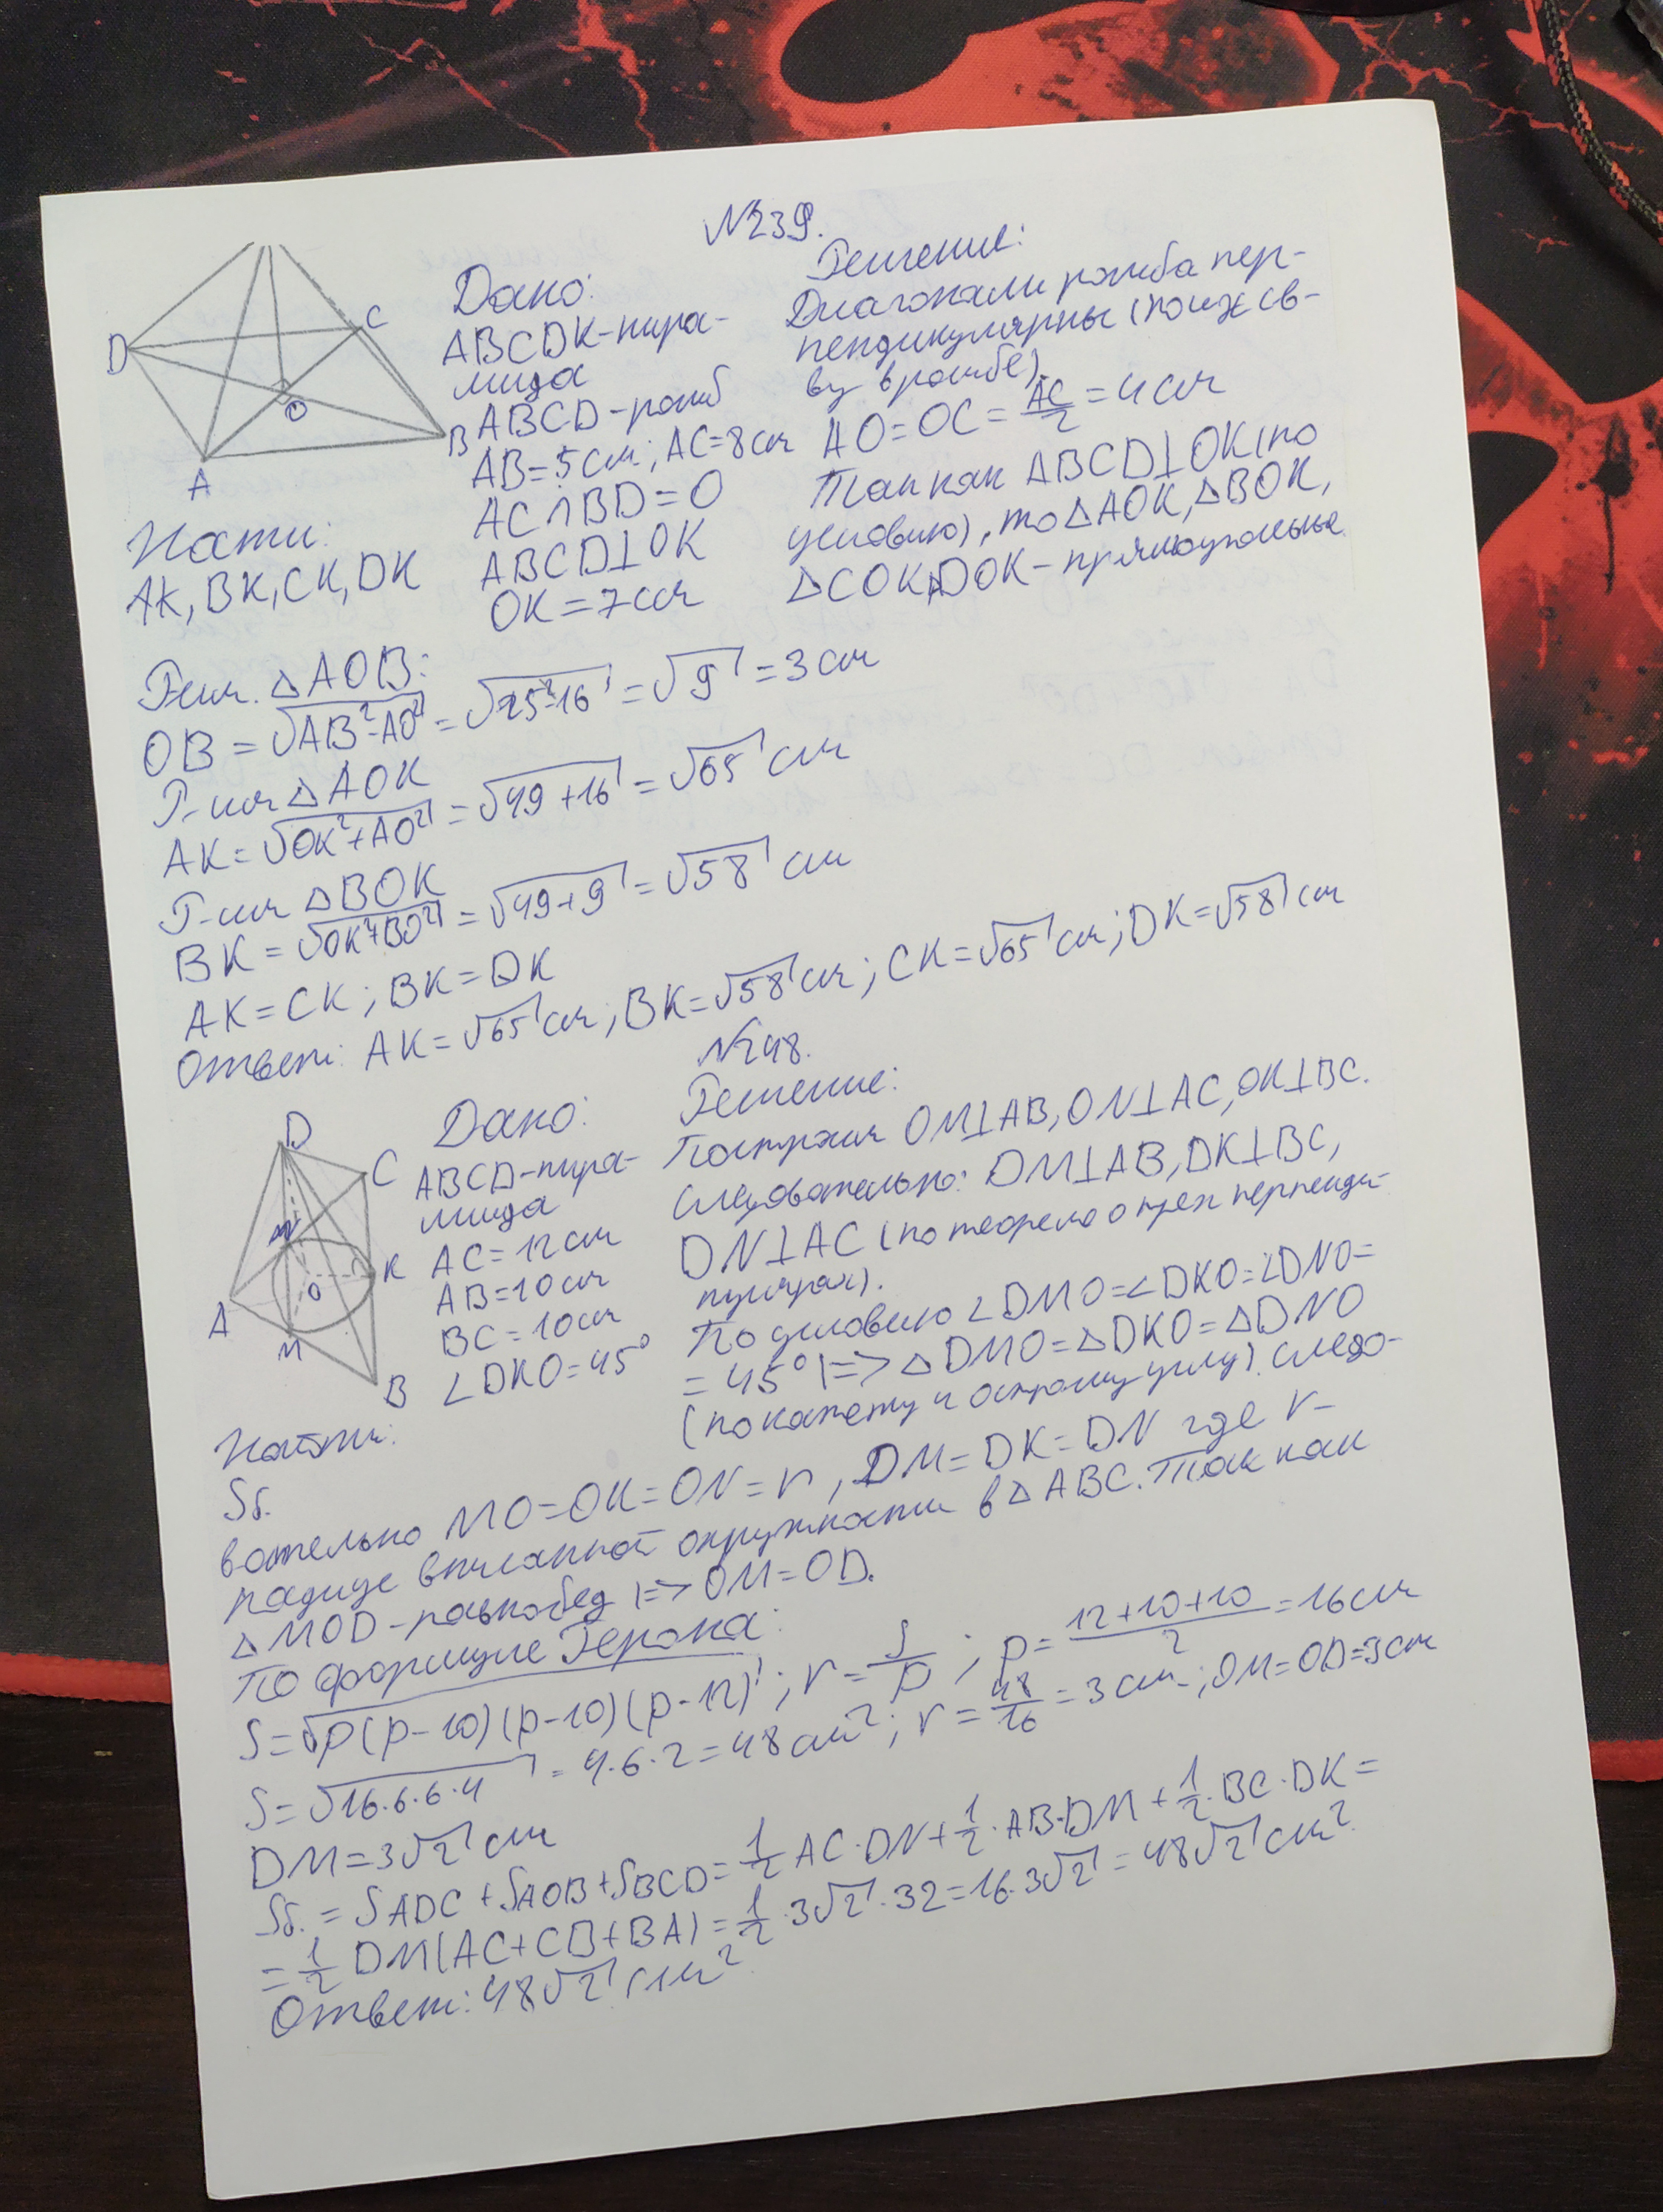 №239.
D
C
O
B
A
Дано:
ABCDK-пира-
мида
ABCD-ромб
AB=5см; AC=8см
AC∩BD=O
ABCD⊥OK
OK=7см
Найти:
AK, BK, CK, DK
Решение:
Диагонали ромба пер-
пендикулярны (по их св-
ву в ромбе).
AO=OC=AC/2=4см
Так как ABCD⊥OK (по
условию), то △AOK, △BOK,
△COK, △DOK-прямоугольные
Рсм. △AOB:
OB=√(AB²-AO²)=√(25-16)=√9=3см
Р-им △AOK
AK=√(OK²+AO²)=√(49+16)=√65 см
Р-им △BOK
BK=√(OK²+BO²)=√(49+9)=√58 см
AK=CK; BK=DK
Ответ: AK=√65 см; BK=√58 см; CK=√65 см; DK=√58 см
№248.
D
C
N
K
O
A
M
B
Дано:
ABCD-пира-
мида
AC=12см
AB=10см
BC=10см
∠DKO=45°
Найти:
Sб.
Решение:
Построим OM⊥AB, ON⊥AC, OK⊥BC.
Следовательно: DM⊥AB, DK⊥BC,
DN⊥AC (по теореме о трех перпенди-
кулярах).
По условию ∠DMO=∠DKO=∠DNO=
=45° |=> △DMO=△DKO=△DNO
(по катету и острому углу). Следо-
вательно MO=OK=ON=r, DM=DK=DN где r-
радиус вписанной окружности в △ABC. Так как
△MOD-равнобед |=> OM=OD.
По формуле Герона:
S=√(p(p-10)(p-10)(p-12)); r=S/p; p=(12+10+10)/2=16см
S=√(16·6·6·4)=4·6·2=48см²; r=48/16=3см; OM=OD=3см
DM=3√2 см
Sб.=SADC+SAOB+SBCD=1/2 AC·DN+1/2·AB·DM+1/2·BC·DK=
=1/2 DM(AC+CB+BA)=1/2·3√2·32=16·3√2=48√2 см²
Ответ: 48√2 см²